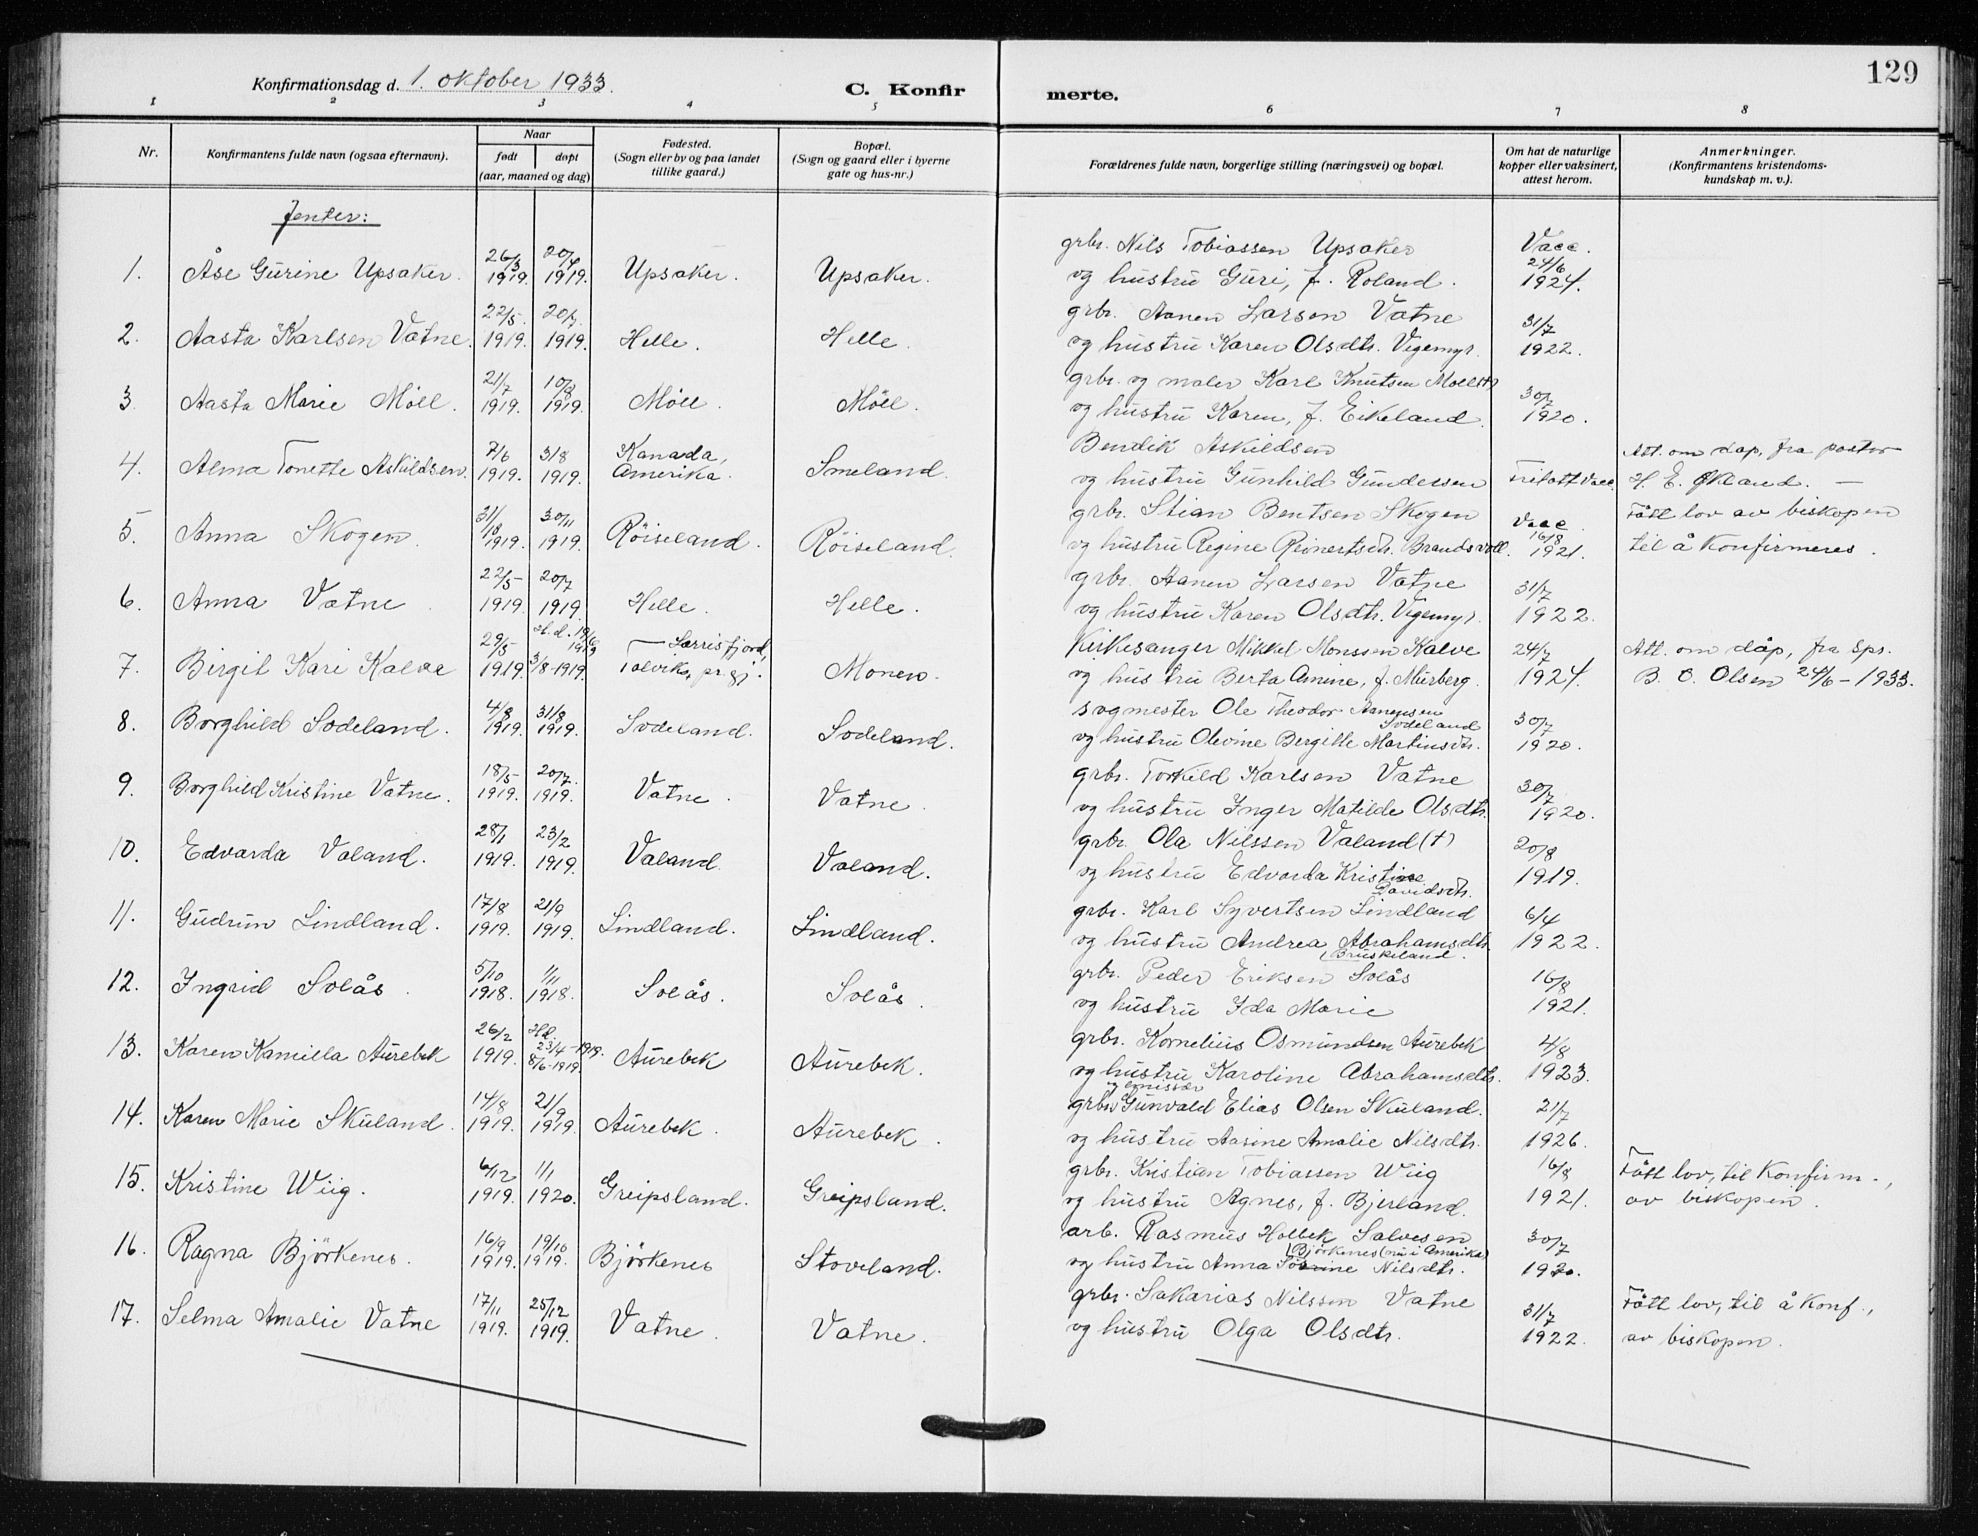 129
Konfirmationsdag d. 1. oktober 1933.
C. Konfirmerte.
1 2 3 4 5 6 7 8
Nr.
Konfirmantens fulde navn (ogsaa efternavn).
Naar
født
døpt
(aar, maaned og dag)
Fødested.
(Sogn eller by og paa landet
tillike gaard.)
Bopæl.
(Sogn og gaard eller i byerne
gate og hus-nr.)
Forældrenes fulde navn, borgerlige stilling (næringsvei) og bopæl.
Om hat de naturlige
kopper eller vaksinert,
attest herom.
Anmerkninger.
(Konfirmantens kristendoms-
kundskap m. v.).
Jenter:
grbr. Nils Tobiassen Upsaker Vacc.
1. Åse Gurine Upsaker. 26/3 1919. 20/4 1919. Upsaker. Upsaker. og hustru Guri, f. Roland. 24/6 1924.
grbr. Aanen Larsen Vatne
2. Aasta Karlsen Vatne. 22/5 1919. 20/7 1919. Helle. Helle. og hustru Karen Olsdtr. Vegemyr. 31/7 1922.
grbr. og maler Karl Knutsen Moell(+)
3. Aasta Marie Möll. 21/7 1919. 10/8 1919. Möll. Möll. og hustru Karen, f. Eikeland. 30/7 1920.
Bendik Askildsen Att. om dåp, fra pastor
4. Alma Tonette Askildsen. 7/6 1919. 3/8 1919. Kanada, Amerika. Smeland. og hustru Gunhild Gundersen Fritatt Vacc. H. E. Økland. —
grbr. Stian Bentsen Skogen Vacc. Fått lov av biskopen
5. Anna Skogen. 31/10 1919. 30/11 1919. Röiseland. Röiseland. og hustru Regine Reinertsdtr. Brandsvoll. 16/8 1921. til å konfirmeres.
grbr. Aanen Larsen Vatne
6. Anna Vatne. 22/5 1919. 20/7 1919. Helle. Helle. og hustru Karen Olsdtr. Vegemyr. 31/7 1922.
Kirkesanger Mikkel Monssen Kalve Att. om dåp, fra spr.
7. Birgit Kari Kalve 29/5 1919. H. d. 19/6 1919 3/8-1919. Talvik, pr.gj. Monen. og hustru Berta Amine, f. Murberg. 24/7 1924. B. O. Olsen 24/6 - 1933.
sogmester Ole Theodor Aanensen Sodeland
8. Borghild Sodeland. 4/8 1919. 31/8 1919. Sodeland. Sodeland. og hustru Olevine Bergitte Martinsdtr. 30/7 1920.
grbr. Torkild Karlsen Vatne
9. Borghild Kristine Vatne. 18/5 1919. 20/7 1919. Vatne. Vatne. og hustru Inger Matilde Olsdtr. 30/7 1920.
grbr. Ola Nilssen Valand (+)
10. Edvarda Valand. 28/1 1919. 23/2 1919. Valand. Valand. og hustru Edvarda Kristine Davidsdtr. 20/8 1919.
grbr. Karl Syvertsen Lindland
11. Gudrun Lindland. 17/8 1919. 21/9 1919. Lindland. Lindland. og hustru Andrea Abrahamsdtr. Bruskeland. 6/4 1922.
grbr. Peder Eriksen Solås
12. Ingrid Solås. 5/10 1918. 1/11 1918. Solås. Solås. og hustru Ida Marie 16/8 1921.
grbr. Kornelius Osmundsen Aurebek
13. Karen Kamilla Aurebek 26/2 1919. Hd. 23/4-1919. 8/6-1919. Aurebek Aurebek. og hustru Karoline Abrahamsdtr. 4/8 1923.
grbr. og emissær Gunvald Elias Olsen Skuland.
14. Karen Marie Skuland. 14/8 1919. 21/9 1919. Aurebek. Aurebek. og hustru Aasine Amalie Nilsdtr. 21/7 1926.
grbr. Kristian Tobiassen Wiig Fått lov, til konfirm.,
15. Kristine Wiig. 6/12 1919. 1/1 1920. Greipsland. Greipsland. og hustru Agnes, f. Bjerland. 16/8 1921. av biskopen.
arb. Rasmus Salvesen Björkenes (nu i Amerika)
16. Ragna Björkenes. 16/9 1919. 19/10 1919. Björkenes Stoveland. og hustru Anna Nilsdtr. 30/7 1920.
grbr. Sakarias Nilssen Vatne Fått lov, til å konf.,
17. Selma Amalie Vatne 17/11 1919. 25/12 1919. Vatne. Vatne. og hustru Olga Olsdtr. 31/7 1922. av biskopen.